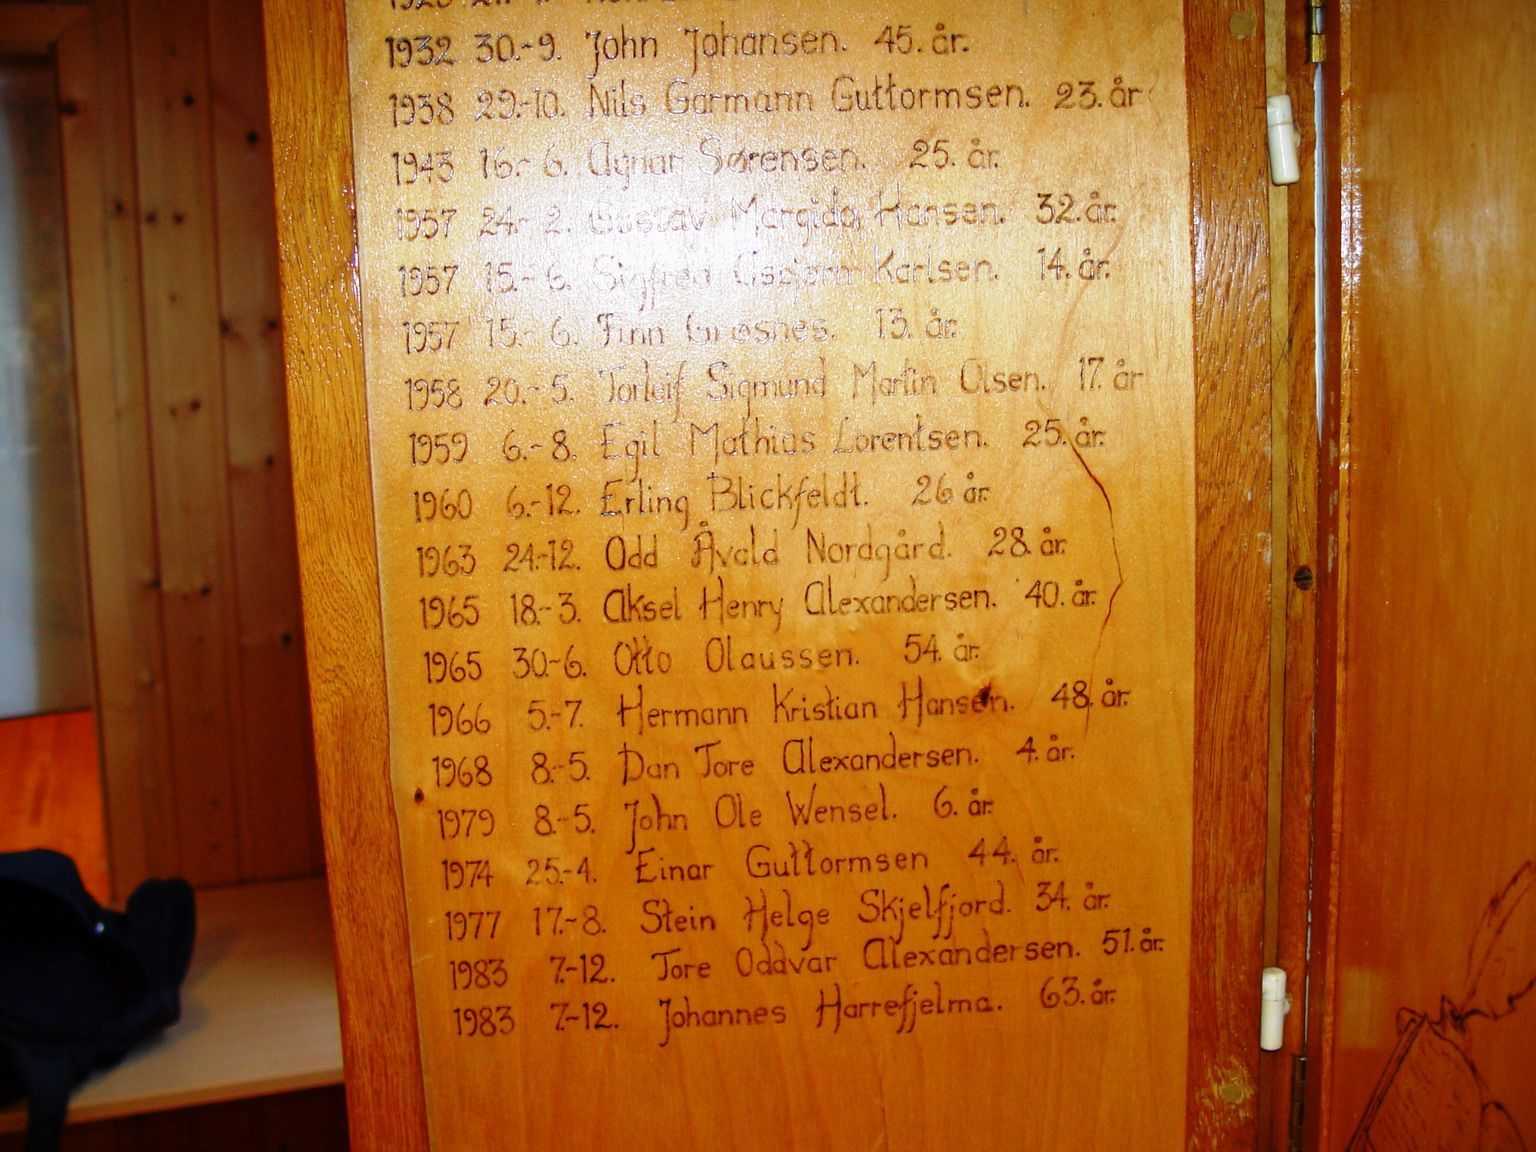 1932 30.-9. John Johansen. 45. år.
1938 29.-10. Nils Garmann Guttormsen. 23. år
1943 16.- 6. Agnar Sørensen. 25. år.
1957 24.- 2. Gustav Margido Hansen. 32. år.
1957 15.- 6. Sigfred Asbjørn Karlsen. 14. år.
1957 15.- 6. Finn Grøsnes. 13. år.
1958 20.- 5. Torleif Sigmund Martin Olsen. 17. år
1959 6.- 8. Egil Mathias Lorentsen. 25. år.
1960 6.-12. Erling Blickfeldt. 26 år.
1963 24.-12. Odd Åvald Nordgård. 28. år.
1965 18.- 3. Aksel Henry Alexandersen. 40. år.
1965 30.-6. Otto Olaussen. 54. år.
1966 5.-7. Hermann Kristian Hansen. 48. år.
1968 8.-5. Dan Tore Alexandersen. 4. år.
1979 8.-5. John Ole Wensel. 6. år.
1974 25.-4. Einar Guttormsen 44. år.
1977 17.-8. Stein Helge Skjelfjord. 34. år.
1983 7.-12. Tore Oddvar Alexandersen. 51. år.
1983 7.-12. Johannes Harrefjelma. 63. år.